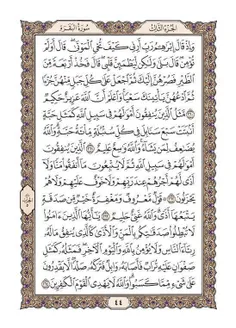 الجزء الثالث
سورة البقرة
وإذ قال إبراهيم رب أرني كيف تحي الموتى قال أولم
تؤمن قال بلى ولكن ليطمئن قلبي قال فخذ أربعة من
الطير فصرهن إليك ثم اجعل على كل جبل منهن جزءا
ثم ادعهن يأتينك سعيا واعلم أن الله عزيز حكيم
مثل الذين ينفقون أموالهم في سبيل الله كمثل حبة
أنبتت سبع سنابل في كل سنبلة مائة حبة والله
يضاعف لمن يشاء والله واسع عليم الذين ينفقون
أموالهم في سبيل الله ثم لا يتبعون ما أنفقوا منا ولا
أذى لهم أجرهم عند ربهم ولا خوف عليهم ولا هم
يحزنون قول معروف ومغفرة خير من صدقة
يتبعها أذى والله غني حليم يا أيها الذين ءامنوا
لا تبطلوا صدقاتكم بالمن والأذى كالذي ينفق ماله
رئاء الناس ولا يؤمن بالله واليوم الآخر فمثله كمثل
صفوان عليه تراب فأصابه وابل فتركه صلدا لا يقدرون
على شيء مما كسبوا والله لا يهدي القوم الكافرين
٤٤